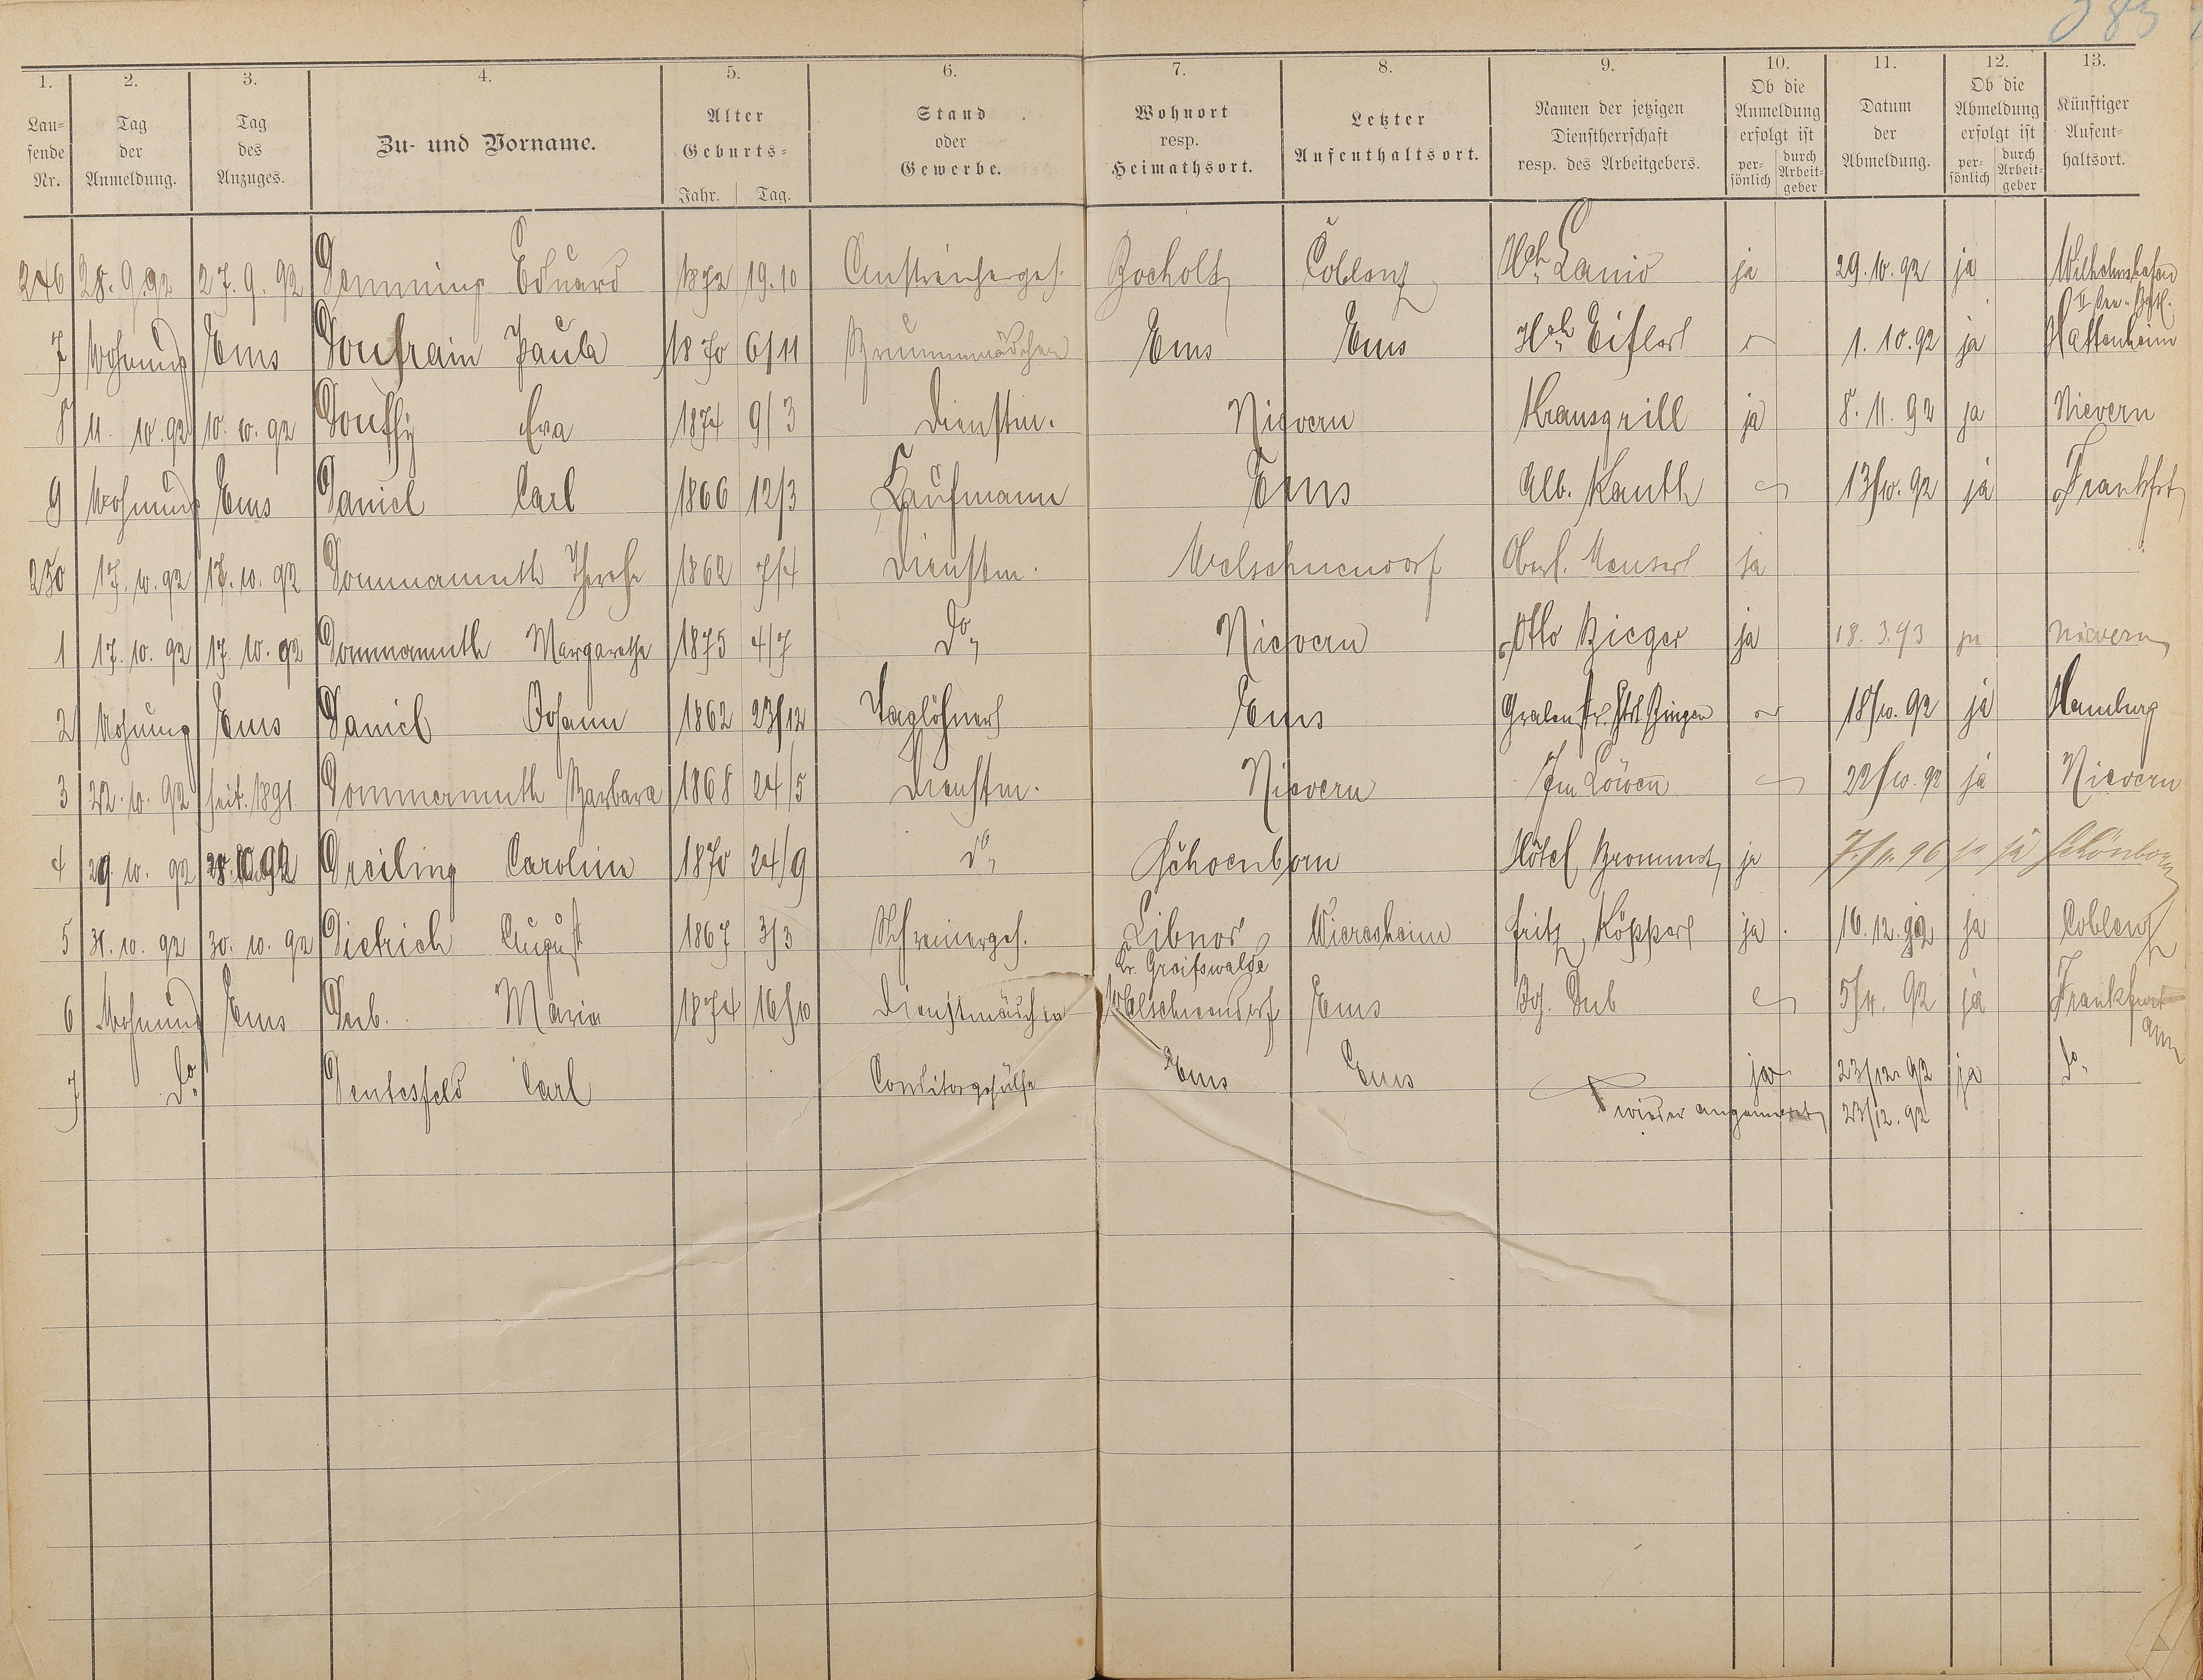 385
1. 2. 3. 4. 5. 6. 7. 8. 9. 10. 11. 12. 13.
Lau-
fende
Nr.
Tag
der
Anmeldung.
Tag
des
Anzuges.
Zu- und Vorname.
Alter
Geburts-
Jahr. Tag.
Stand
oder
Gewerbe.
Wohnort
resp.
Heimathsort.
Letzter
Aufenthaltsort.
Namen der jetzigen
Dienstherrschaft
resp. des Arbeitgebers.
Ob die
Anmeldung
erfolgt ist
per-
sönlich
durch
Arbeit-
geber
Datum
der
Abmeldung.
Ob die
Abmeldung
erfolgt ist
per-
sönlich
durch
Arbeit-
geber
Künftiger
Aufent-
haltsort.
246 28. 9. 92 27. 9. 92 Demming Eduard 1872 19. 10 Anstreicherges. Bocholt Coblenz Hch. Lanio ja 29. 10. 92 ja Wilhelmshafen
7 Wohnung Ems Doufrain Paula 1870 6/11 Brunnenmädchen Ems Ems Hch. Eifler 1. 10. 92 ja Hattenheim
8 11. 10. 92 10. 10. 92 Eva 1874 9/3 Dienstm. Nievern Krausgrill ja 8. 11. 92 ja Nievern
9 Wohnung Ems Daniel Carl 1866 12/3 Kaufmann Ems Alb. Kauth 13/10. 92 ja Frankfrt
250 17. 10. 92 17. 10. 92 Dommermuth Therese 1862 7/4 Dienstm. Welschneudorf Oberl. ja
1 17. 10. 92 17. 10. 92 Dommermuth Margarethe 1875 4/7 do. Nievern Otto Bieger ja 18. 3. 93 ja Nievern
2 Wohnung Ems Daniel Johann 1862 23/12 Taglöhner Ems 18/10. 92 ja Hamburg
3 22. 10. 92 seit. 1891 Dommermuth Barbara 1868 24/5 Dienstm. Nievern Im Löwen 22/10. 92 ja Nievern
4 29. 10. 92 28. 10. 92 Dreiling Caroline 1870 24/9 do. Schoenborn Hôtel ja 96 ja Schönborn
5 31. 10. 92 30. 10. 92 Dietrich August 1867 3/3 Schreinerges. Libnow Wieresheim Fritz Köpper ja. 16. 12. 92 ja Coblenz
Kr. Greifswalde
6 Wohnung Ems Dub. Maria 1874 16/10 Dienstmädchen Welschneudorf Ems Jos. Dub 5/11. 92 ja Frankfurt
a/m
7 do. Dentesfeld Carl Conditorgehülfe Ems Ems ja 23/12. 92 ja do.
wieder angemeldet 23/12. 92